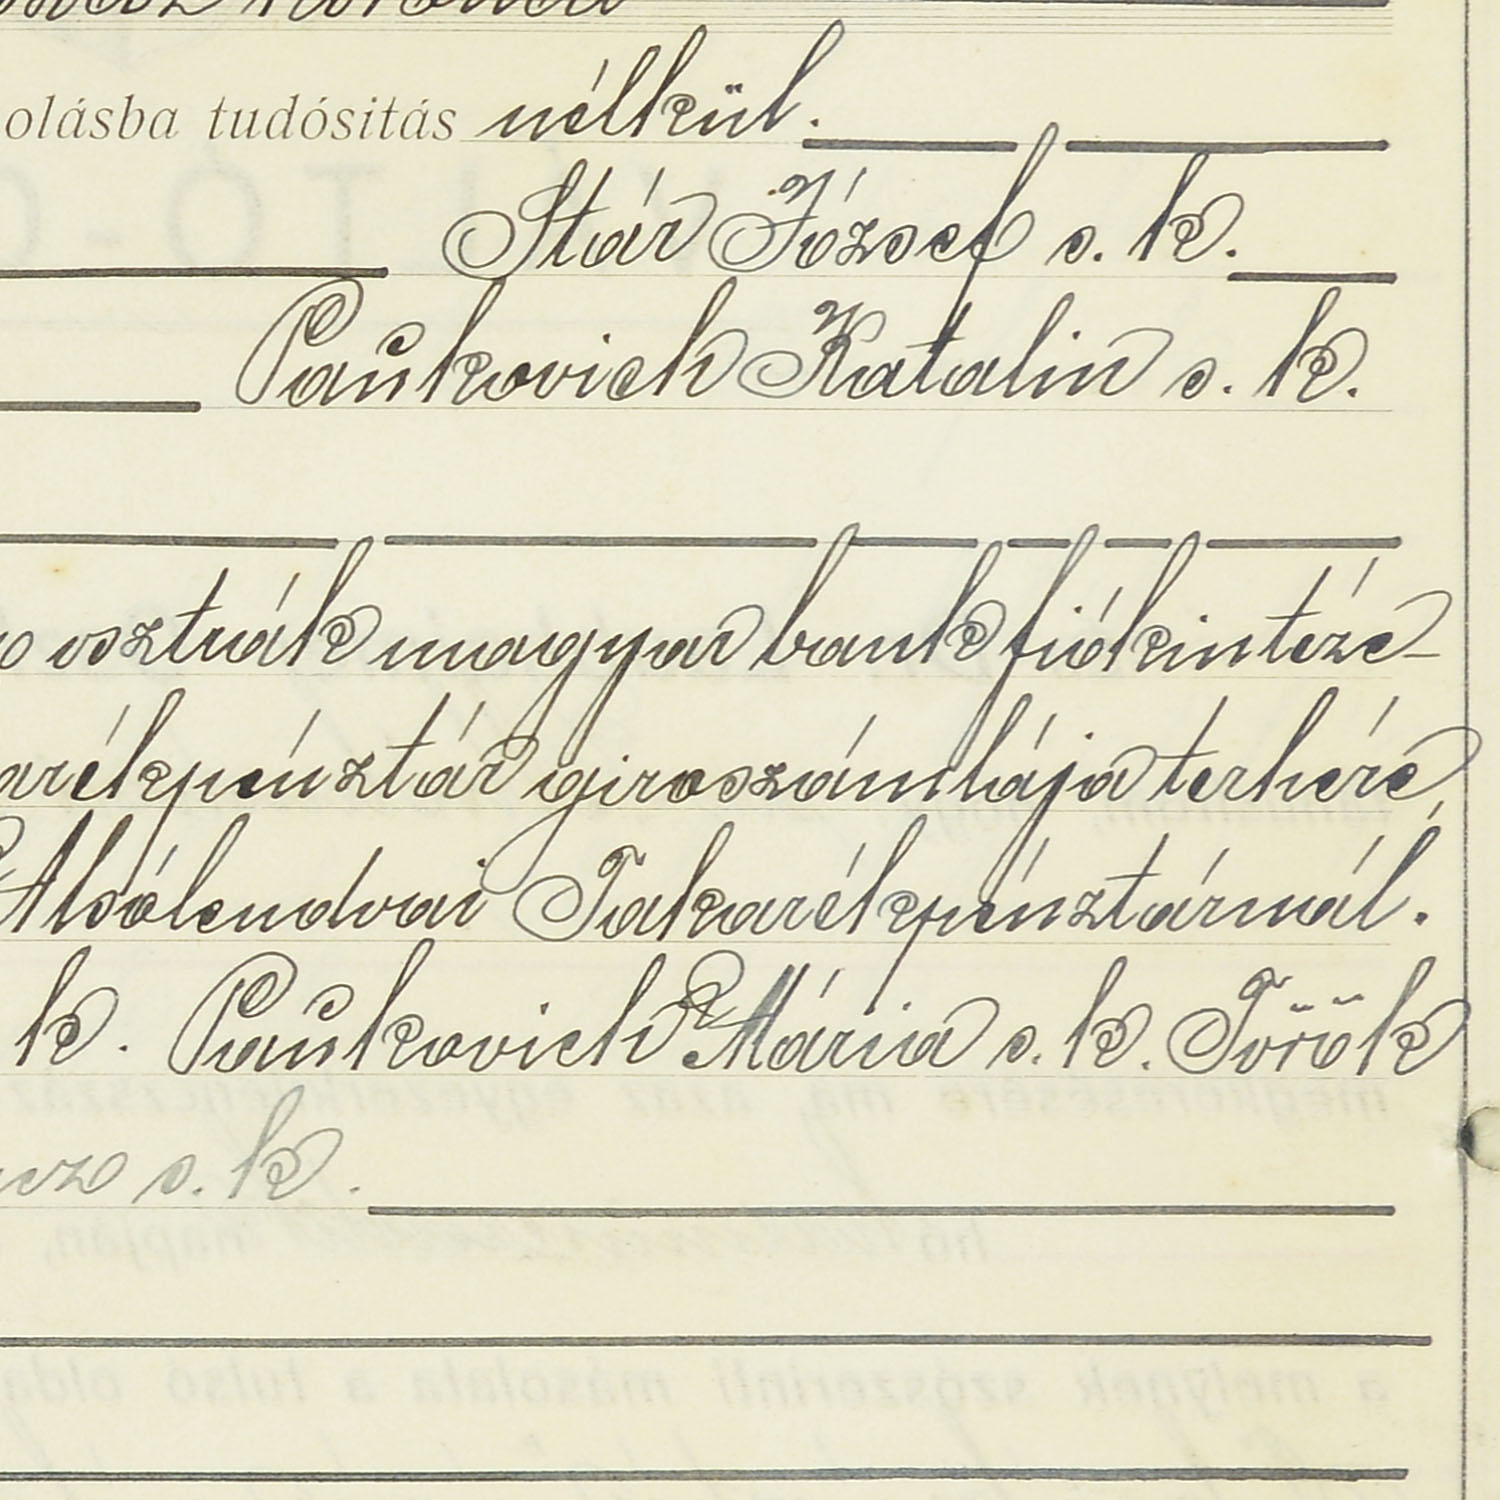 korona
olásba tudósitás nélkül.
Stár József s. k.
Paukovich Katalin s. k.
osztrák magyar bank fiókintézé-
arékpénztár giroszámlája terhére
Alsólendvai Takarékpénztárnál.
k. Paukovich Mária s. k. Török
s. k.